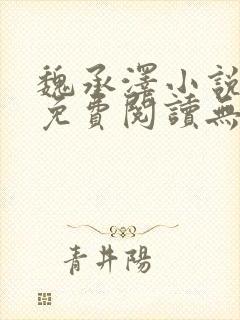 魏承澤小說
免費閱讀無
青井陽